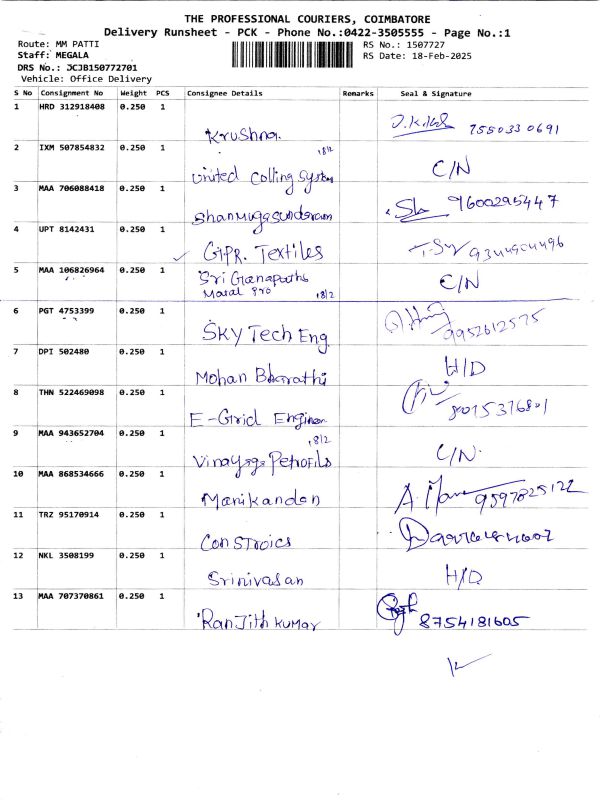 THE PROFESSIONAL COURIERS, COIMBATORE
Delivery Runsheet - PCK - Phone No.:0422-3505555 - Page No.:1
Route: MM PATTI RS No.: 1507727
Staff: MEGALA RS Date: 18-Feb-2025
DRS No.: JCJB150772701
Vehicle: Office Delivery
S No Consignment No Weight PCS Consignee Details Remarks Seal & Signature
1 HRD 312918408 0.250 1
Krushna 7550330691
2 IXM 507854832 0.250 1
18/2 C/N
United Colling System
3 MAA 706088418 0.250 1
Shanmugasundaram 9600295447
4 UPT 8142431 0.250 1
GIPR. Textiles
5 MAA 106826964 0.250 1
Sri Ganapathi C/N
18/2
6 PGT 4753399 0.250 1
SKY Tech Eng 9952612575
7 DPI 502480 0.250 1
Mohan Bharathi H/D
8 THN 522469098 0.250 1
E-Grid Engineer 8015376801
9 MAA 943652704 0.250 1
18/2
Vinayaga Petrofils C/N.
10 MAA 868534666 0.250 1
Manikandan 9597825122
11 TRZ 95170914 0.250 1
Constroics
12 NKL 3508199 0.250 1
Srinivasan H/D
13 MAA 707370861 0.250 1
Ranjith kumar 8754181605